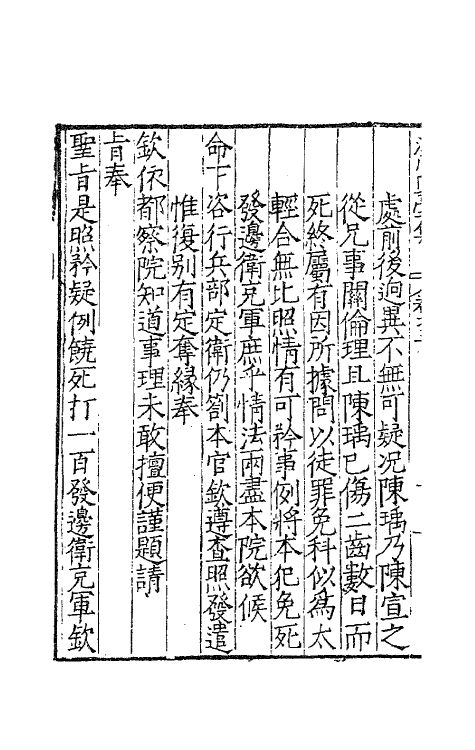 處前後迥異不無可疑况陳瑀乃陳宣之
從兄事關倫理且陳瑀已傷二齒數日而
死終屬有因所據問以徒罪免科似為太
輕合無比照情有可矜事例將本犯免死
發邊衛充軍庶乎情法兩盡本院欲候
命下咨行兵部定衛仍劄本官欽遵查照發遣
惟復别有定奪緣奉
欽依都察院知道事理未敢擅便謹題請
旨奉
聖旨是照矜疑例饒死打一百發邊衛充軍欽